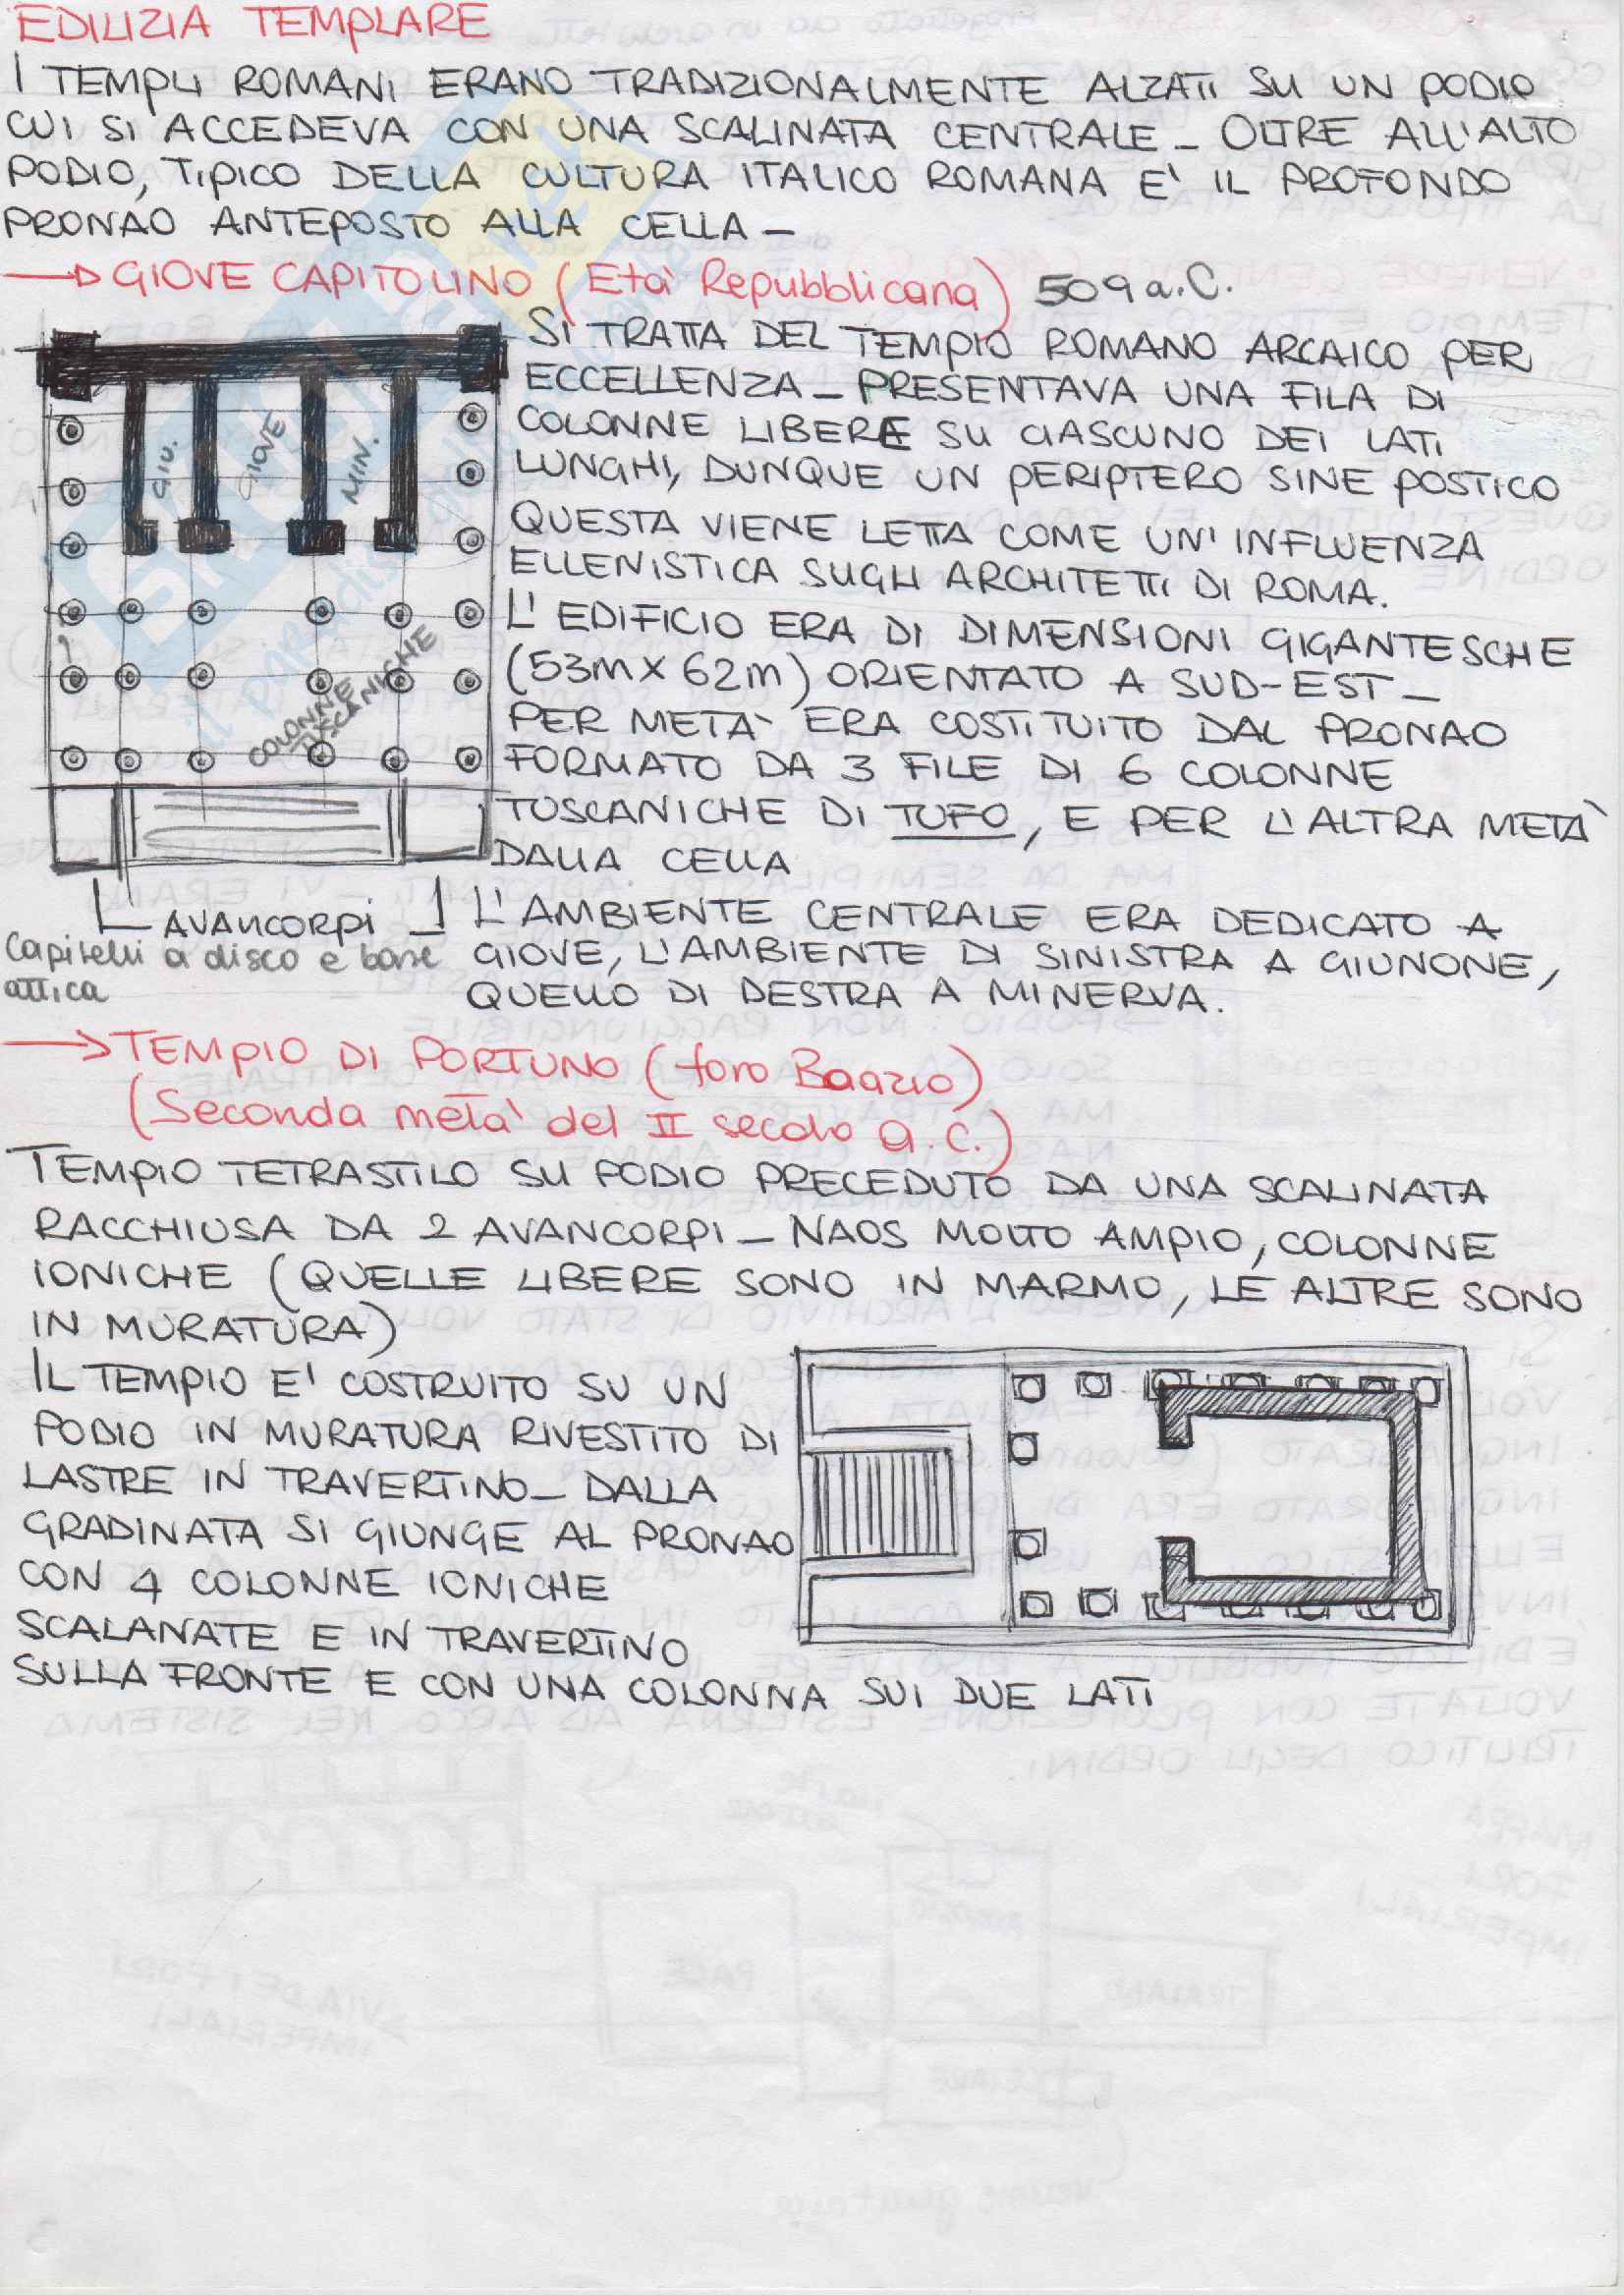 EDILIZIA TEMPLARE
I TEMPLI ROMANI ERANO TRADIZIONALMENTE ALZATI SU UN PODIO
CUI SI ACCEDEVA CON UNA SCALINATA CENTRALE - OLTRE ALL'ALTO
PODIO, TIPICO DELLA CULTURA ITALICO ROMANA E' IL PROFONDO
PRONAO ANTEPOSTO ALLA CELLA -
→ GIOVE CAPITOLINO (Età Repubblicana) 509 a.C.
SI TRATTA DEL TEMPIO ROMANO ARCAICO PER
ECCELLENZA - PRESENTAVA UNA FILA DI
COLONNE LIBERE SU CIASCUNO DEI LATI
LUNGHI, DUNQUE UN PERIPTERO SINE POSTICO
QUESTA VIENE LETTA COME UN'INFLUENZA
ELLENISTICA SUGLI ARCHITETTI DI ROMA.
L'EDIFICIO ERA DI DIMENSIONI GIGANTESCHE
(53m X 62m) ORIENTATO A SUD-EST -
PER METÀ ERA COSTITUITO DAL PRONAO
FORMATO DA 3 FILE DI 6 COLONNE
TUSCANICHE DI TUFO, E PER L'ALTRA METÀ
DALLA CELLA
L'AMBIENTE CENTRALE ERA DEDICATO A
GIOVE, L'AMBIENTE DI SINISTRA A GIUNONE,
QUELLO DI DESTRA A MINERVA.
GIU.
GIOVE
MIN.
COLONNE
TUSCANICHE
AVANCORPI
Capitelli a disco e base
attica
→ TEMPIO DI PORTUNO (foro Boario)
(Seconda metà del II secolo a.C.)
TEMPIO TETRASTILO SU PODIO PRECEDUTO DA UNA SCALINATA
RACCHIUSA DA 2 AVANCORPI - NAOS MOLTO AMPIO, COLONNE
IONICHE (QUELLE LIBERE SONO IN MARMO, LE ALTRE SONO
IN MURATURA)
IL TEMPIO E' COSTRUITO SU UN
PODIO IN MURATURA RIVESTITO DI
LASTRE IN TRAVERTINO - DALLA
GRADINATA SI GIUNGE AL PRONAO
CON 4 COLONNE IONICHE
SCALANATE E IN TRAVERTINO
SULLA FRONTE E CON UNA COLONNA SUI DUE LATI